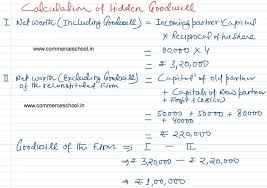 Calculation of Hidden Goodwill
I Net worth (Including Goodwill) = Incoming partner Capital
x Reciprocal of his share
www.commerceschool.in
= 80,000 x 4
= ₹ 3,20,000
II Net worth (Excluding Goodwill) = Capital of old partner
of the reconstituted Firm + Capitals of New partner
+ Profit &
www.commerceschool.in
= 50000 + 50000 + 80000
+ 40000
= ₹ 220,000
Goodwill of the Firm => I - II
=> ₹ 3,20,000 - ₹ 2,20,000
=> ₹ 1,00,000